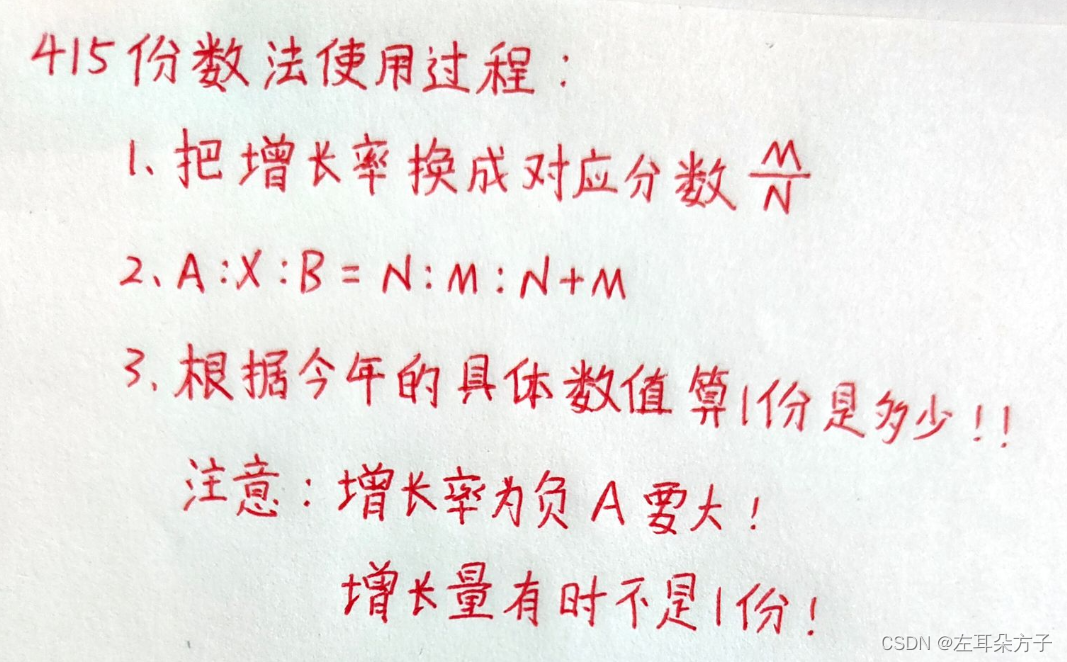 415份数法使用过程：
1、把增长率换成对应分数 M/N
2、A:X:B=N:M:N+M
3、根据今年的具体数值算1份是多少!!
注意：增长率为负A要大!
增长量有时不是1份!
CSDN @左耳朵方子